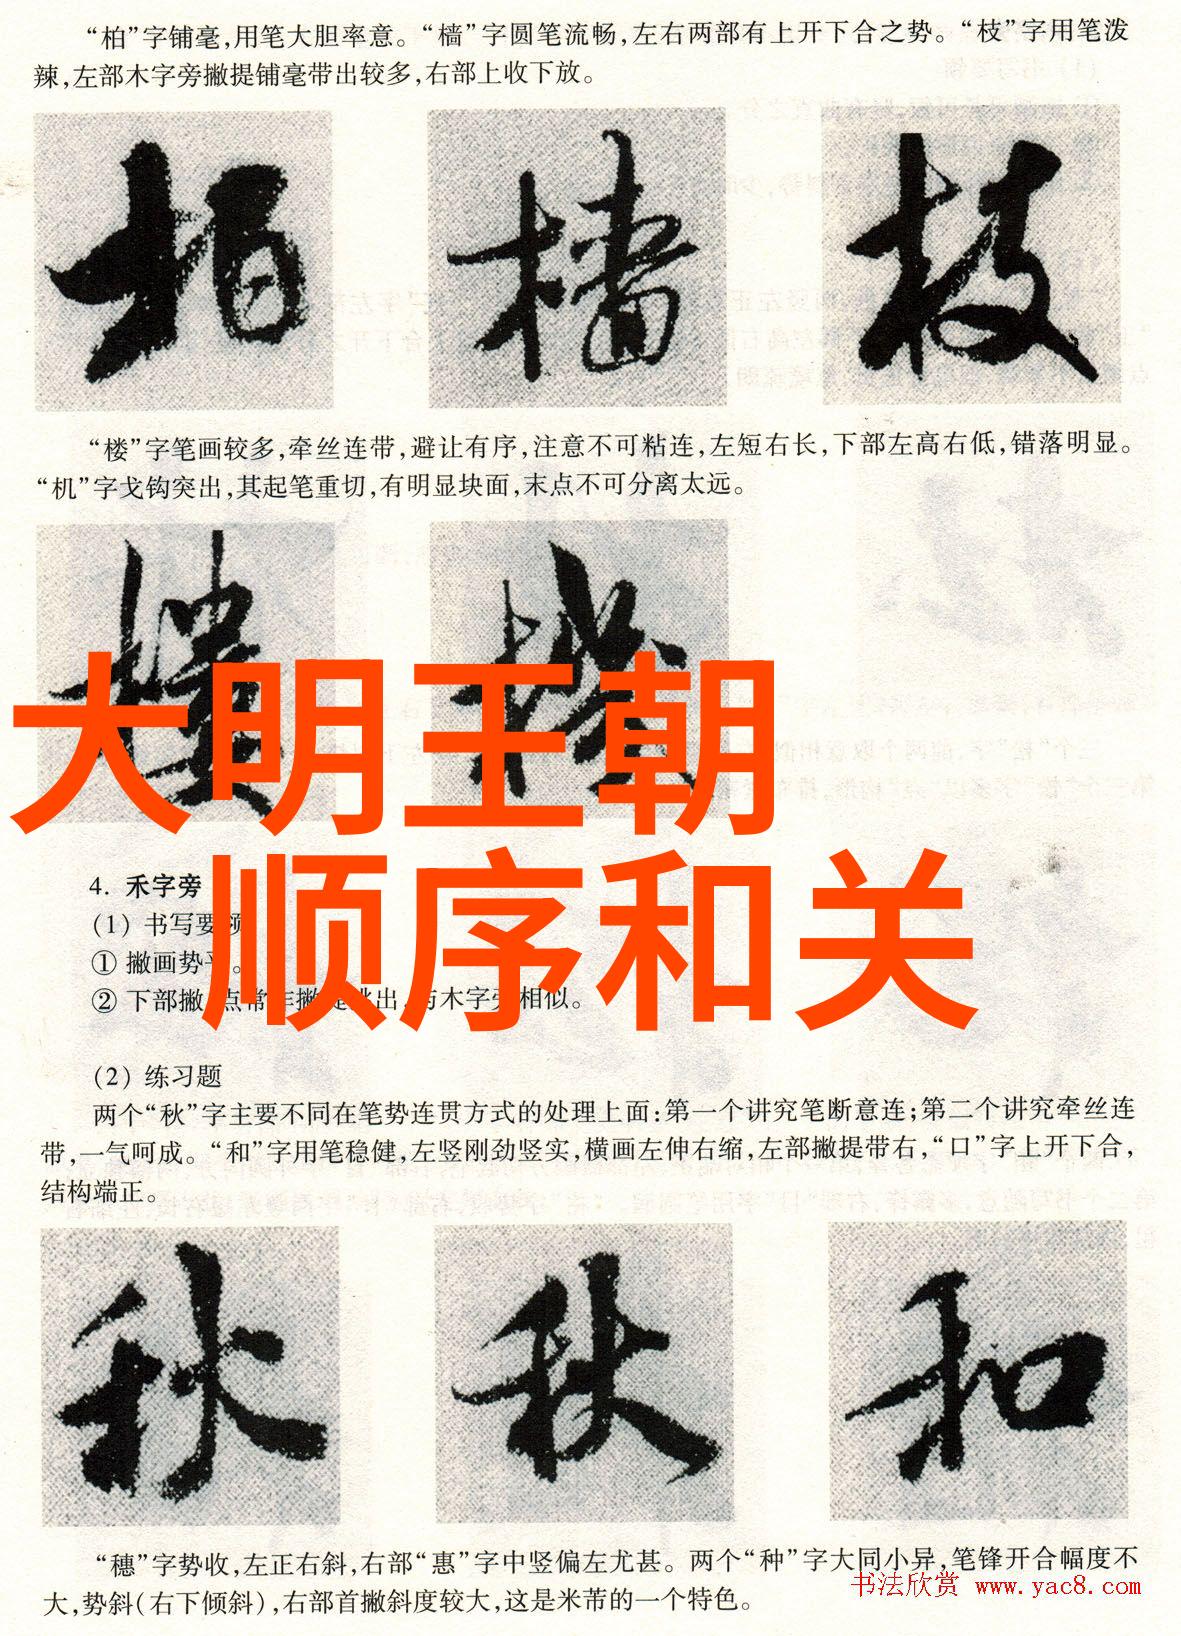 “柏”字铺毫,用笔大胆率意。“樯”字圆笔流畅,左右两部有上开下合之势。“枝”字用笔泼
辣,左部木字旁撇提铺毫带出较多,右部上收下放。
柏 樯 枝
“楼”字笔画较多,牵丝连带,避让有序,注意不可粘连,左短右长,下部左高右低,错落明显。
“机”字戈钩突出,其起笔重切,有明显块面,末点不可分离太远。
樓 機
大明王朝
顺序和关
4. 禾字旁
(1) 书写要领
① 撇画势平。
② 下部撇、点常作撇提挑出,与木字旁相似。
(2) 练习题
两个“秋”字主要不同在笔势连贯方式的处理上面:第一个讲究笔断意连;第二个讲究牵丝连
带,一气呵成。“和”字用笔稳健,左竖刚劲竖实,横画左伸右缩,左部撇提带右,“口”字上开下合,
结构端正。
秋 秋 和
“穗”字势收,左正右斜,右部“惠”字中竖偏左尤甚。两个“种”字大同小异,笔锋开合幅度不
大,势斜(右下倾斜),右部首撇斜度较大,这是米芾的一个特色。
书法欣赏 www.yac8.com